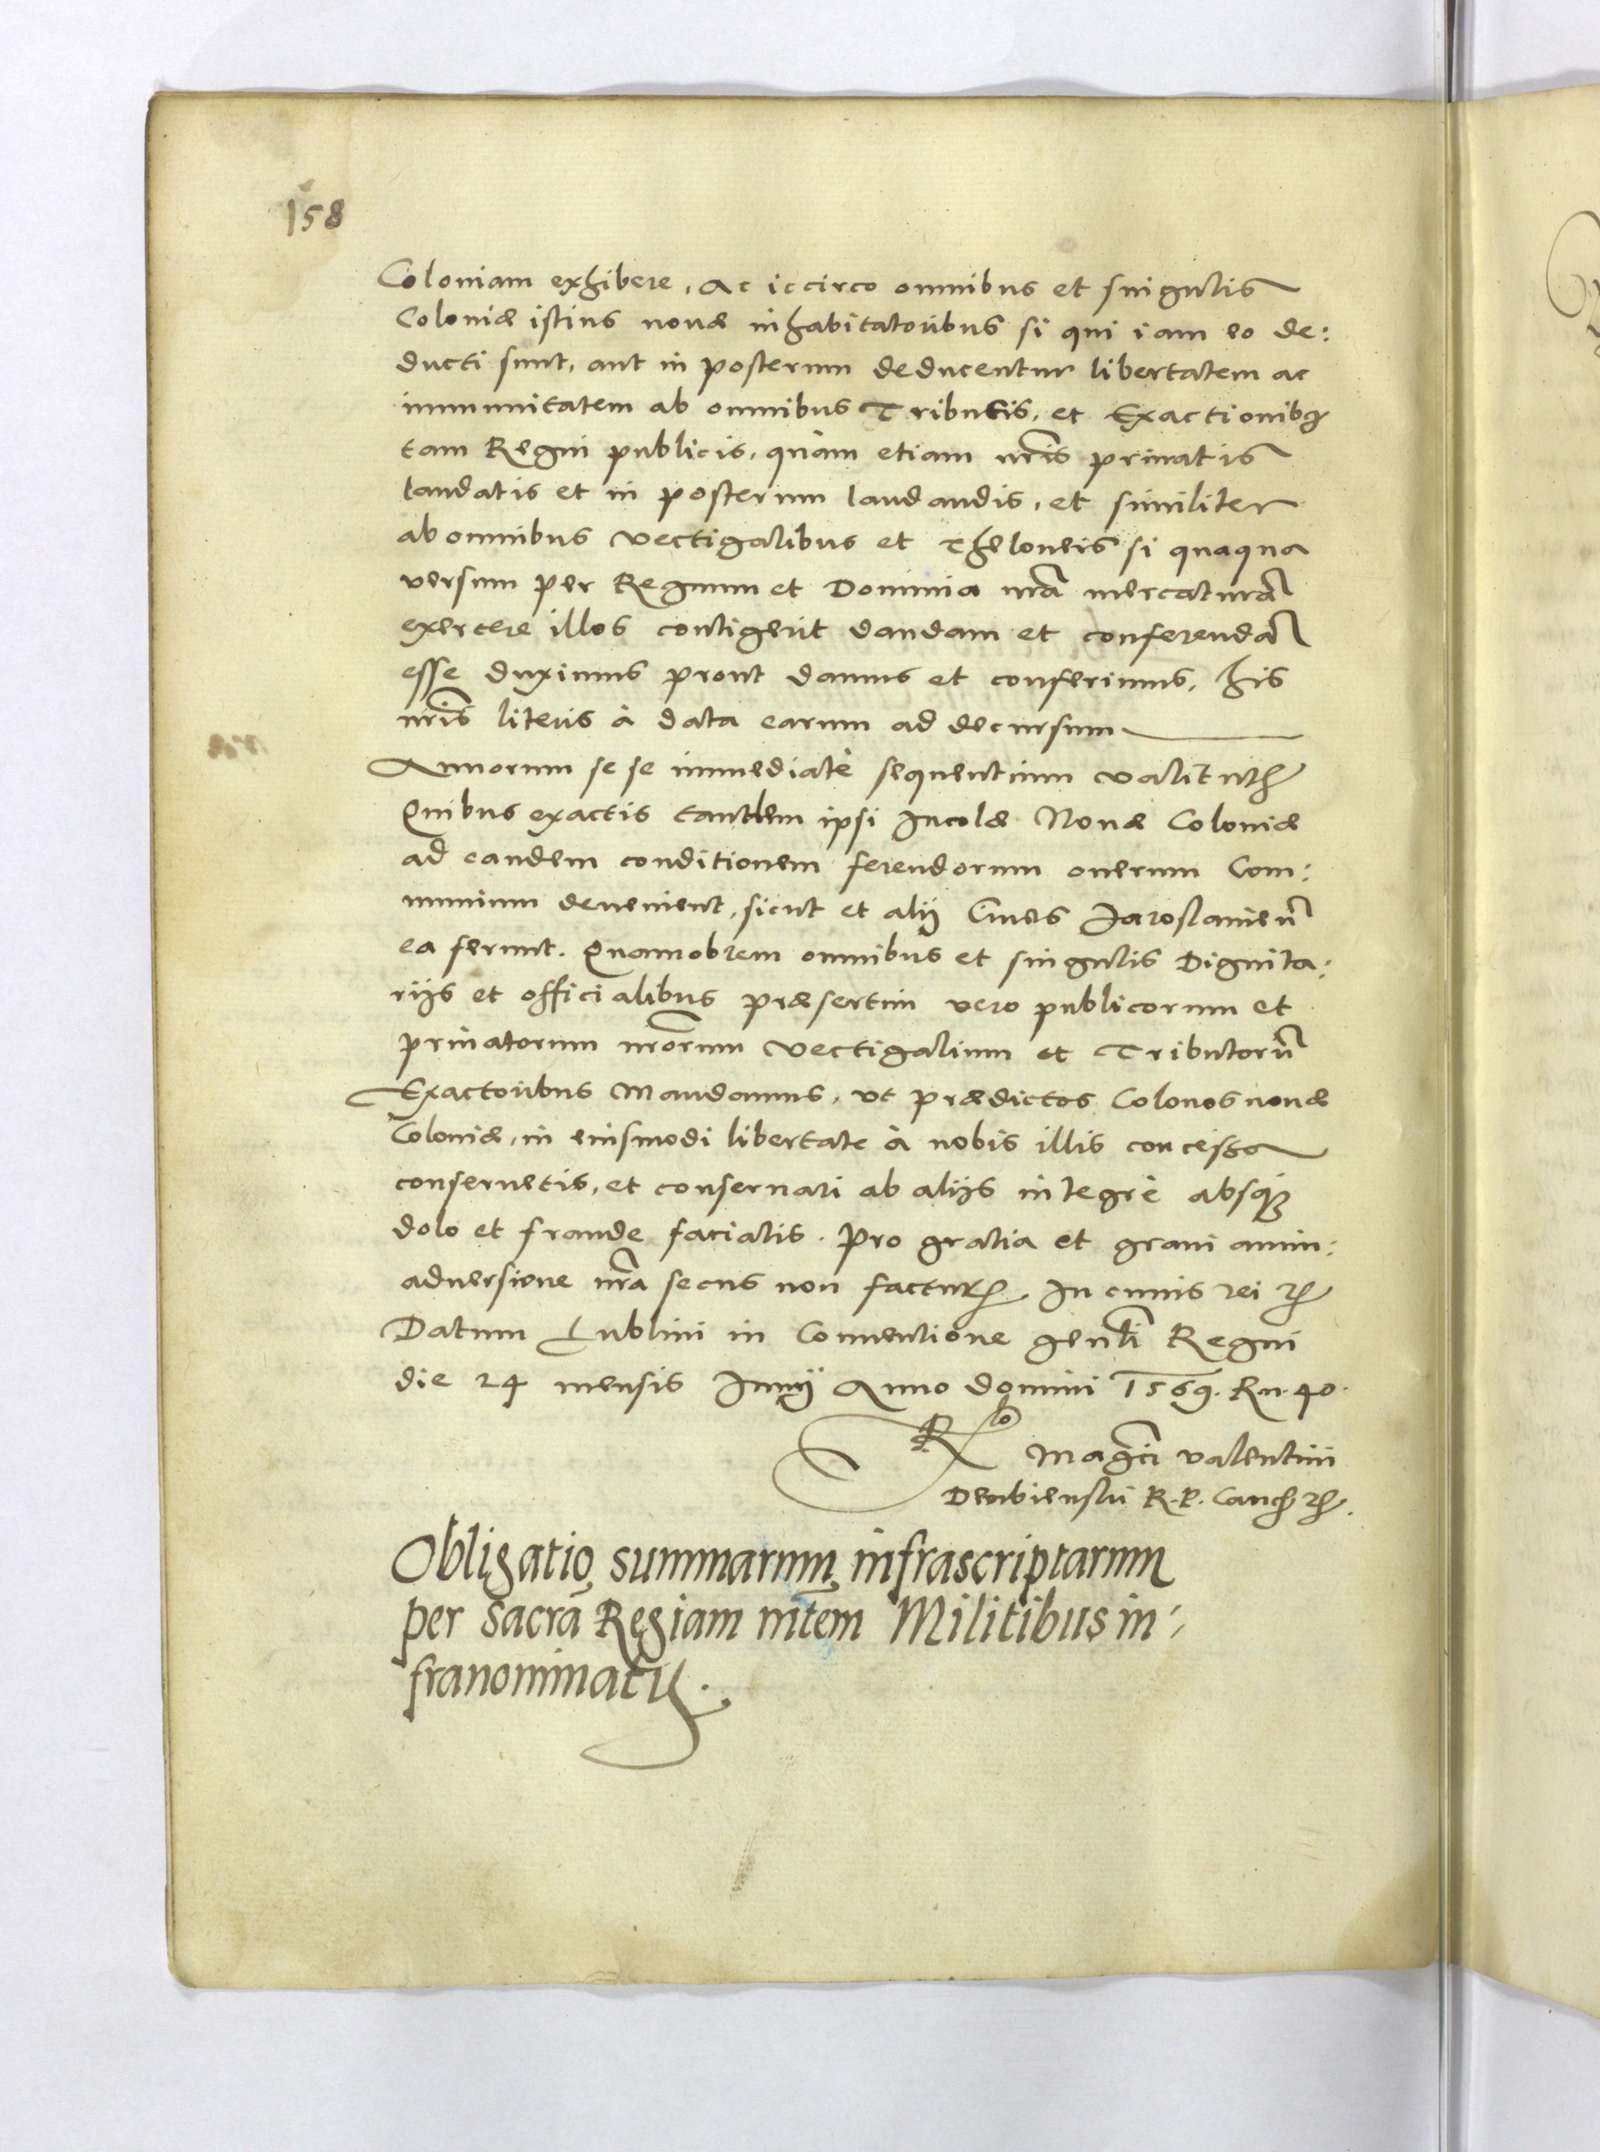 158
Coloniam exhibere, Ac iccirco omnibus et singulis
Coloniæ istius nouæ inhabitatoribus si qui iam eo de:
ducti sunt, aut in posterum deducentur libertatem ac
immunitatem ab omnibus Tributis, et Exactionibꝫ
tam Regni publicis, quàm etiam nris priuatis
laudatis et in posterum laudandis, et similiter
ab omnibus vectigalibus et Theloneis si quaqua
versum per Regnum et Dominia nrã mercaturã
exercere illos contigerit dandam et conferendã
esse duximus prout damus et conferimus, his
nris literis à data earum ad decursum
Annorum se se immediatè sequentium valitur̃
Quibus exactis tandem ipsi Incolæ Nouæ Coloniæ
ad eandem conditionem ferendorum onerum Com:
munium deuenient, sicut et alij Ciues Jaroslauieñ
ea ferunt. Quamobrem omnibus et singulis Dignita:
rijs et officialibus præsertim vero publicorum et
priuatorum nrorum vectigalium et Tributorũ
Exactoribus Mandamus, vt prædictos Colonos nouæ
Coloniæ, in eiusmodi libertate à nobis illis concessa
conseruetis, et conseruari ab alijs integrè absqꝫ
dolo et fraude faciatis. Pro gratia et graui anim:
aduersione nrã secus non factur̃. In cuius rei ꝛc
Datum Lublini in Conuentione genli Regni
die 24 mensis Junij Anno domini 1569. Rn. 40.
Rlo Magci Valentini
Dembienski R. P. Canc. ꝛc.
Obligatio summarum infrascriptarum
per sacrã Regiam mtem Militibus in:
franominatis.